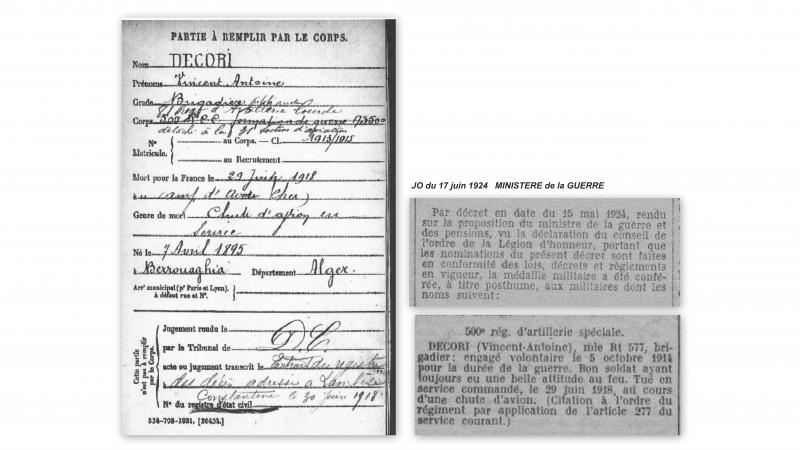 PARTIE À REMPLIR PAR LE CORPS.
Nom DECORI
Prénoms Vincent Antoine
Grade Brigadier
Corps 500e formation de guerre
détaché à la 31e section d'aviation
Nº au Corps. — Cl. 1915/1915
Matricule. au Recrutement
Mort pour la France le 29 Juin 1918
au Camp d'Avor (Cher)
Genre de mort Chute d'avion en
service
Né le 7 Avril 1895
à Berrouaghia Département Alger.
Arr' municipal (pr Paris et Lyon),
à défaut rue et Nº.
Cette partie
n'est pas à remplir
par le Corps.
Jugement rendu le
par le Tribunal de D.C.
acte ou jugement transcrit le Extrait du registre
des décès adressé à Lambèse
Constantine le 30 juin 1918
Nº du registre d'état civil
534-708-1921. [26434.]
JO du 17 juin 1924 MINISTERE de la GUERRE
Par décret en date du 15 mai 1924, rendu
sur la proposition du ministre de la guerre et
des pensions, vu la déclaration du conseil de
l'ordre de la Légion d'honneur, portant que
les nominations du présent décret sont faites
en conformité des lois, décrets et règlements
en vigueur, la médaille militaire a été confé-
rée, à titre posthume, aux militaires dont les
noms suivent:
500e rég. d'artillerie spéciale.
DECORI (Vincent-Antoine), mle Rt 577, bri-
gadier: engagé volontaire le 5 octobre 1914
pour la durée de la guerre. Bon soldat ayant
toujours eu une belle attitude au feu. Tué en
service commandé, le 29 juin 1918, au cours
d'une chute d'avion. (Citation à l'ordre du
régiment par application de l'article 277 du
service courant.)